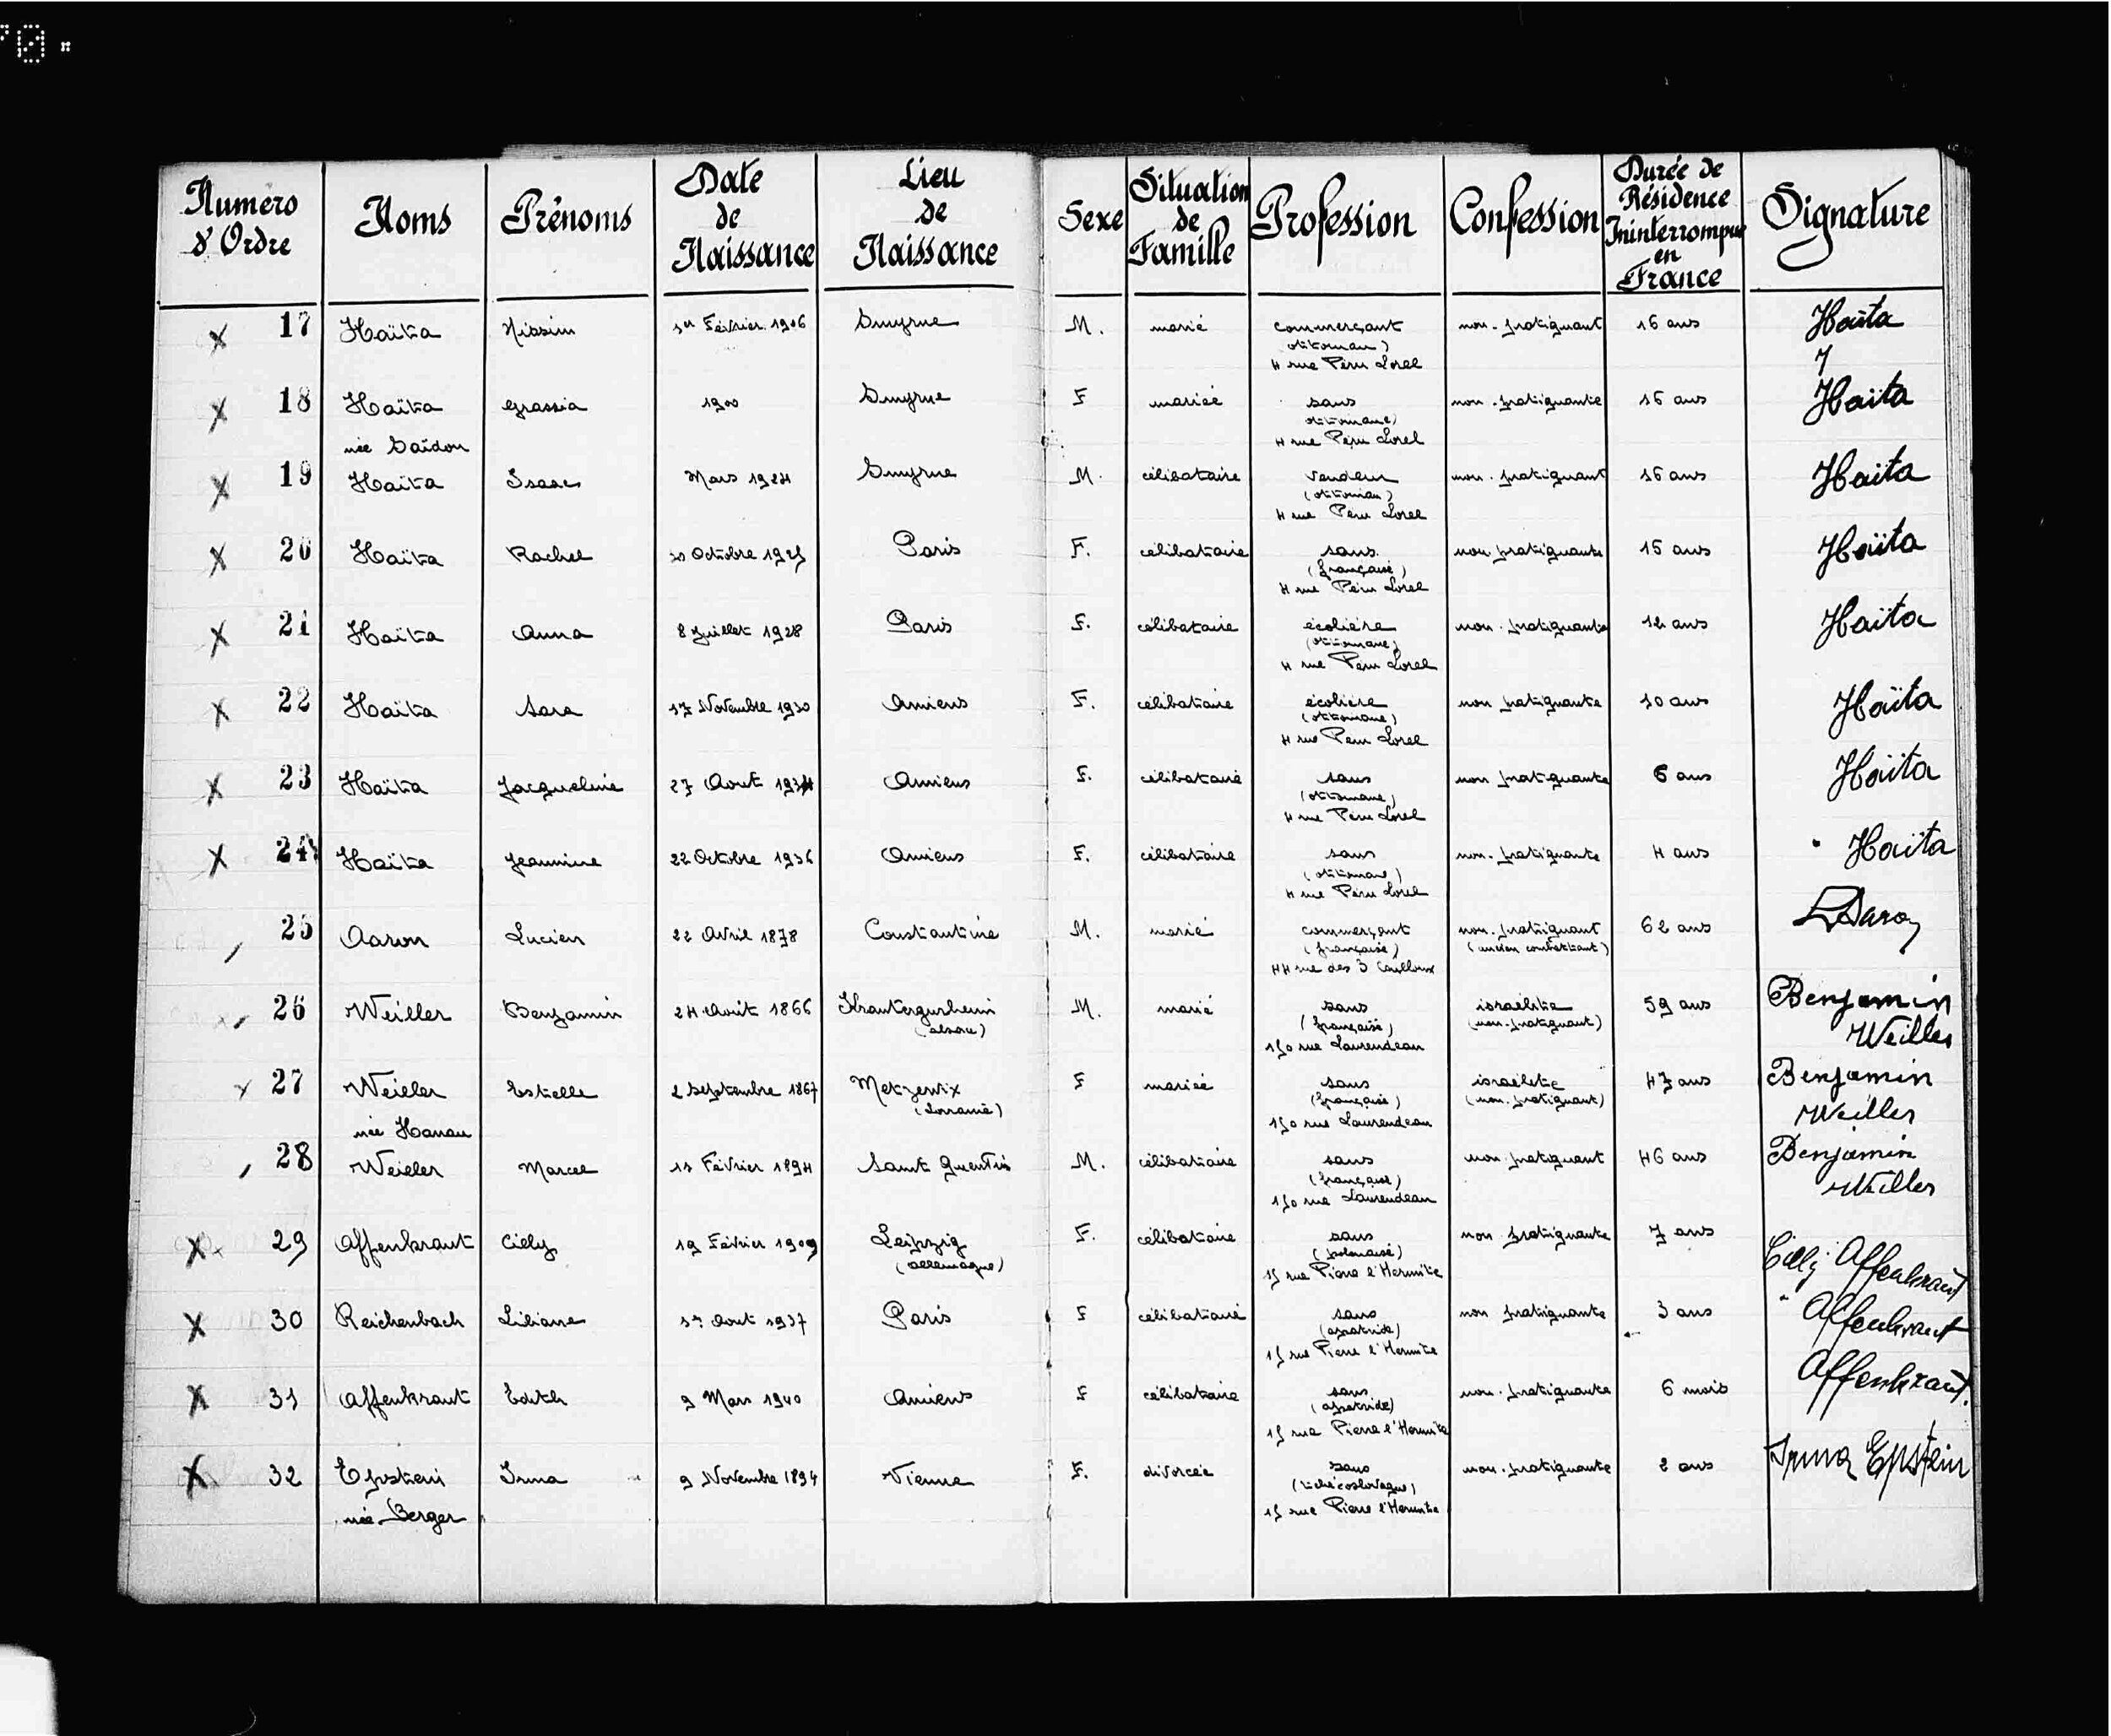 Numéro d'Ordre
Noms
Prénoms
Date de Naissance
Lieu de Naissance
Sexe
Situation de Famille
Profession
Confession
Durée de Résidence Ininterrompue en France
Signature
17 Haïta Nissim 1er Février 1906 Smyrne M. marié commerçant non-pratiquant 16 ans Haïta
(ottoman)
4 rue Péru Lorel
18 Haïta Grassia 1900 Smyrne F mariée sans non-pratiquante 16 ans Haïta
née Saïdon (ottomane)
4 rue Péru Lorel
19 Haïta Isaac Mars 1924 Smyrne M. célibataire vendeur non-pratiquant 16 ans Haïta
(ottoman)
4 rue Péru Lorel
20 Haïta Rachel 20 Octobre 1925 Paris F. célibataire sans non pratiquante 15 ans Haïta
(française)
4 rue Péru Lorel
21 Haïta Anna 8 Juillet 1928 Paris F. célibataire écolière non-pratiquante 12 ans Haïta
(ottomane)
4 rue Péru Lorel
22 Haïta Sara 17 Novembre 1930 Amiens F. célibataire écolière non pratiquante 10 ans Haïta
(ottomane)
4 rue Péru Lorel
23 Haïta Jacqueline 27 Aout 1934 Amiens F. célibataire sans non pratiquante 6 ans Haïta
(ottomane)
4 rue Péru Lorel
24 Haïta Jeannine 22 Octobre 1936 Amiens F. célibataire sans non-pratiquante 4 ans Haïta
(ottomane)
4 rue Péru Lorel
25 Aaron Lucien 22 Avril 1878 Constantine M. marié commerçant non-pratiquant 62 ans LAaron
(française) (ancien combattant)
44 rue des 3 Cailloux
26 Weiller Benjamin 24 Août 1866 Krautergersheim M. marié sans israëlite 59 ans Benjamin Weiller
(Alsace) (française) (non-pratiquant)
150 rue Laurendeau
27 Weiller Estelle 2 Septembre 1867 Metzervix F mariée sans israëlite 47 ans Benjamin Weiller
née Hanau (Lorraine) (française) (non-pratiquant)
150 rue Laurendeau
28 Weiller Marcel 11 Février 1894 Saint Quentin M. célibataire sans non-pratiquant 46 ans Benjamin Weiller
(française)
150 rue Laurendeau
29 Affenkraut Cilly 19 Février 1909 Leipzig F. célibataire sans non pratiquante 7 ans Cilly Affenkraut
(Allemagne) (polonaise)
15 rue Pierre l'Hermite
30 Reichenbach Liliane 17 Aout 1937 Paris F célibataire sans non pratiquante 3 ans Affenkraut
(apatride)
15 rue Pierre l'Hermite
31 Affenkraut Edith 9 Mars 1940 Amiens F célibataire sans non-pratiquante 6 mois Affenkraut
(apatride)
15 rue Pierre l'Hermite
32 Epstein Irma 9 Novembre 1894 Vienne F. divorcée sans non-pratiquante 2 ans Irma Epstein
née Berger (tchécoslovaque)
15 rue Pierre l'Hermite